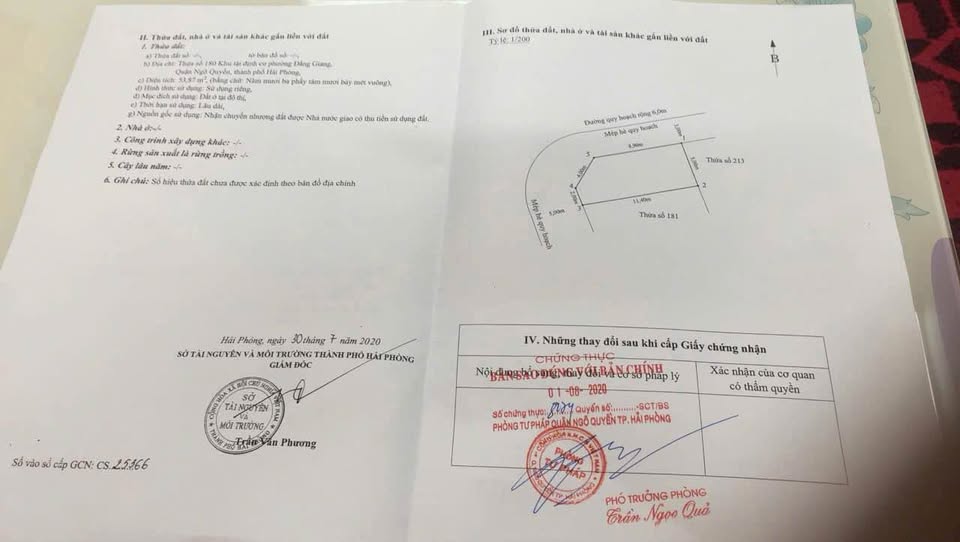 II. Thửa đất, nhà ở và tài sản khác gắn liền với đất
1. Thửa đất:
a) Thửa đất số: -/-, tờ bản đồ số: -/-,
b) Địa chỉ: Thửa số 180 Khu tái định cư phường Đằng Giang,
Quận Ngô Quyền, thành phố Hải Phòng,
c) Diện tích: 53,87 m², (bằng chữ: Năm mươi ba phẩy tám mươi bảy mét vuông),
d) Hình thức sử dụng: Sử dụng riêng,
đ) Mục đích sử dụng: Đất ở tại đô thị,
e) Thời hạn sử dụng: Lâu dài,
g) Nguồn gốc sử dụng: Nhận chuyển nhượng đất được Nhà nước giao có thu tiền sử dụng đất.
2. Nhà ở:-/-
3. Công trình xây dựng khác: -/-
4. Rừng sản xuất là rừng trồng: -/-
5. Cây lâu năm: -/-
6. Ghi chú: Số hiệu thửa đất chưa được xác định theo bản đồ địa chính
Hải Phòng, ngày 30 tháng 7 năm 2020
SỞ TÀI NGUYÊN VÀ MÔI TRƯỜNG THÀNH PHỐ HẢI PHÒNG
GIÁM ĐỐC
SỞ
TÀI NGUYÊN
VÀ
MÔI TRƯỜNG
Trần Văn Phương
Số vào sổ cấp GCN: CS.25366
III. Sơ đồ thửa đất, nhà ở và tài sản khác gắn liền với đất
Tỷ lệ: 1/200
B
Đường quy hoạch rộng 6,0m
Mép hè quy hoạch
3,00m
1
8,90m
5
5,00m
Thửa số 213
4,00m
4
2
2,00m
11,40m
3
5,00m
Thửa số 181
Mép hè quy hoạch
IV. Những thay đổi sau khi cấp Giấy chứng nhận
Nội dung bổ sung, thay đổi và cơ sở pháp lý
Xác nhận của cơ quan
có thẩm quyền
CHỨNG THỰC
BẢN SAO ĐÚNG VỚI BẢN CHÍNH
01-08-2020
Số chứng thực: Quyển số:..........-SCT/BS
PHÒNG TƯ PHÁP QUẬN NGÔ QUYỀN TP. HẢI PHÒNG
PHÒNG
TƯ PHÁP
PHÓ TRƯỞNG PHÒNG
Trần Ngọc Quả